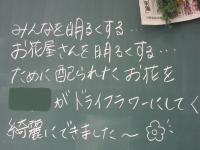 みんなを明るくする…
お花屋さんを明るくする…
ために配られたお花を
がドライフラワーにしてく
綺麗にできました〜